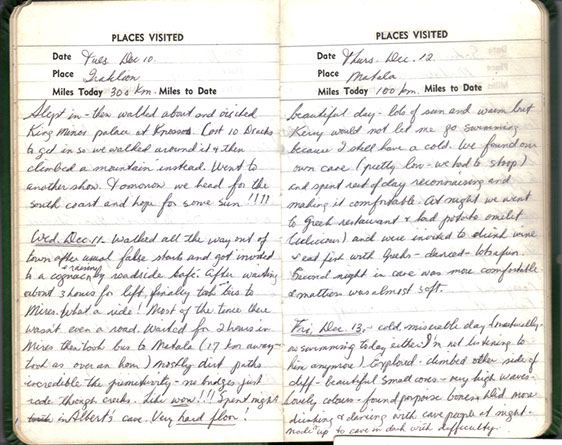 PLACES VISITED
Date Tues. Dec 10.
Place Iraklion
Miles Today 300 km. Miles to Date
Slept in - then walked about and visited
King Minos palace at Knossos. Cost 10 Drachs
to get in so we walked around it & then
climbed a mountain instead. Went to
another show. Tomorrow we head for the
south coast and hope for some sun !!!!
Wed. Dec 11 - Walked all the way out of
town after usual false starts and got invited
to a roadside cafe. After waiting
about 3 hours for lift, finally took bus to
Mires. What a ride! Most of the time there
wasn't even a road. Waited for 2 hours in
Mires then took bus to Matala (17 km away -
took us over an hour) Mostly dirt paths
incredible the primitivity - no bridges just
rode through creeks. Like wow!!! Spent night
in Albert's cave. Very hard floor!
PLACES VISITED
Date Thurs. Dec. 12
Place Matala
Miles Today 100 km. Miles to Date
beautiful day - lots of sun and warm but
Kerry would not let me go swimming
because I still have a cold. We found our
own cave (pretty low - we had to stoop)
and spent rest of day reconnoising and
making it comfortable. At night we went
to Greek restaurant & had potato omelet
(delicious) and were invited to drink wine
& eat fish with Greeks - danced - lots of fun.
Second night in cave was more comfortable
mattress was almost soft.
Fri. Dec 13, - cold miserable day (naturally -
no swimming today either. I'm not listening to
him anymore) Explored - climbed other side of
cliff - beautiful small coves - very high waves -
lovely colours - found porpoise bones. Did more
drinking & dancing with cave people at night -
made it up to cave in dark with difficulty.